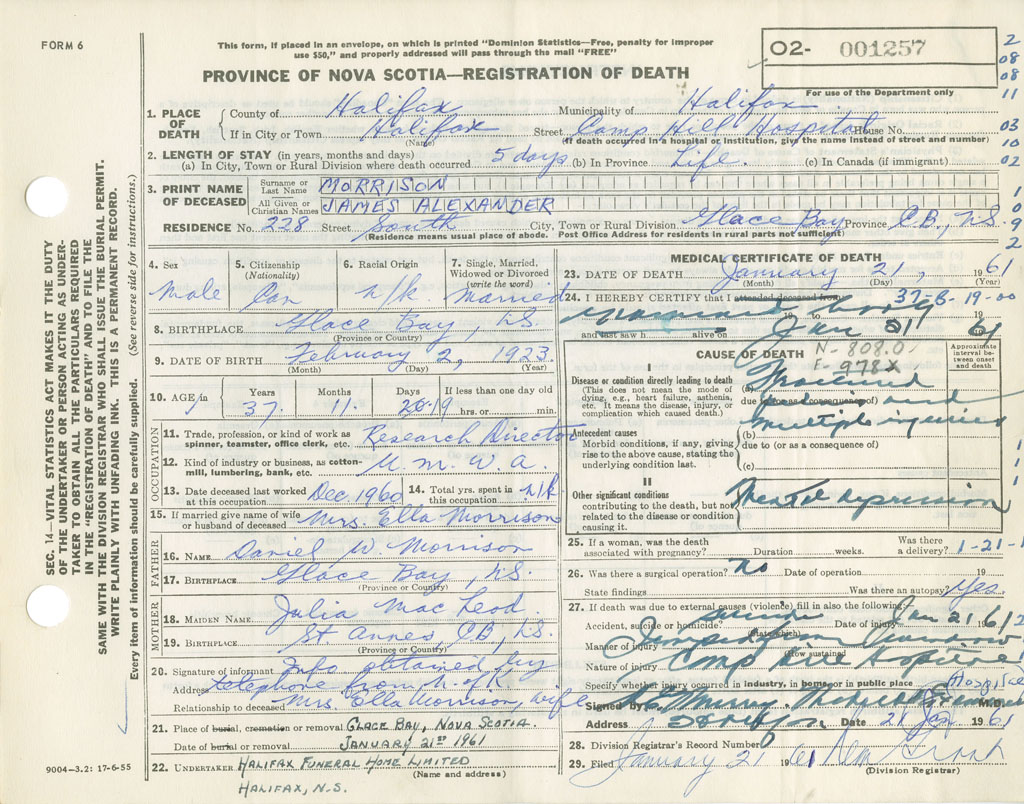 FORM 6
This form, if placed in an envelope, on which is printed "Dominion Statistics—Free, penalty for improper
use $50," and properly addressed will pass through the mail "FREE"
PROVINCE OF NOVA SCOTIA—REGISTRATION OF DEATH
O2- 001257
For use of the Department only
2
08
08
11
03
10
02
1
0
9
2
SEC. 14—VITAL STATISTICS ACT MAKES IT THE DUTY
OF THE UNDERTAKER OR PERSON ACTING AS UNDER-
TAKER TO OBTAIN ALL THE PARTICULARS REQUIRED
IN THE "REGISTRATION OF DEATH" AND TO FILE THE
SAME WITH THE DIVISION REGISTRAR WHO SHALL ISSUE THE BURIAL PERMIT.
WRITE PLAINLY WITH UNFADING INK. THIS IS A PERMANENT RECORD.
Every item of information should be carefully supplied. (See reverse side for instructions.)
1. PLACE OF DEATH
County of Halifax Municipality of Halifax
If in City or Town Halifax Street Camp Hill Hospital House No.
(Name) (If death occurred in a hospital or institution, give the name instead of street and number)
2. LENGTH OF STAY (in years, months and days)
(a) In City, Town or Rural Division where death occurred 5 days (b) In Province Life. (c) In Canada (if immigrant)
3. PRINT NAME OF DECEASED
Surname or Last Name MORRISON
All Given or Christian Names JAMES ALEXANDER
RESIDENCE No. 228 Street South City, Town or Rural Division Glace Bay Province C.B., N.S.
(Residence means usual place of abode. Post Office Address for residents in rural parts not sufficient)
4. Sex Male
5. Citizenship (Nationality) Can
6. Racial Origin N/K.
7. Single, Married, Widowed or Divorced (write the word) Married
8. BIRTHPLACE Glace Bay, N.S.
(Province or Country)
9. DATE OF BIRTH February 2, 1923
(Month) (Day) (Year)
10. AGE in Years 37. Months 11. Days 19 If less than one day old hrs. or min.
OCCUPATION
11. Trade, profession, or kind of work as spinner, teamster, office clerk, etc. Research Director
12. Kind of industry or business, as cotton-mill, lumbering, bank, etc. U.M.W.A.
13. Date deceased last worked at this occupation Dec 1960
14. Total yrs. spent in this occupation N/K
15. If married give name of wife or husband of deceased Mrs. Ella Morrison
FATHER
16. NAME Daniel W Morrison
17. BIRTHPLACE Glace Bay, N.S.
(Province or Country)
MOTHER
18. MAIDEN NAME Julia MacLeod.
19. BIRTHPLACE St Annes, C.B., N.S.
(Province or Country)
20. Signature of informant Info obtained by
Address telephone from N.of.K.
Relationship to deceased Mrs. Ella Morrison, wife
21. Place of burial, cremation or removal GLACE BAY, NOVA SCOTIA.
Date of burial or removal JANUARY 21ST 1961
22. UNDERTAKER HALIFAX FUNERAL HOME LIMITED
(Name and address)
HALIFAX, N.S.
9004—3.2: 17-6-55
MEDICAL CERTIFICATE OF DEATH
23. DATE OF DEATH January 21, 1961
(Month) (Day) (Year)
24. I HEREBY CERTIFY that I attended deceased from 37-B-19-00
19 to 19
and last saw h alive on Jan 21 1961
CAUSE OF DEATH N-808.0
E-978X
Approximate interval between onset and death
I
Disease or condition directly leading to death
(This does not mean the mode of dying, e.g., heart failure, asthenia, etc. It means the disease, injury, or complication which caused death.)
(a) Fractured
due to (or as a consequence of) and
Antecedent causes
Morbid conditions, if any, giving rise to the above cause, stating the underlying condition last.
(b) multiple injuries
due to (or as a consequence of)
(c)
II
Other significant conditions
contributing to the death, but not related to the disease or condition causing it.
Mental depression
25. If a woman, was the death associated with pregnancy? Duration weeks. Was there a delivery? 1-21-1
26. Was there a surgical operation? No Date of operation 19
State findings Was there an autopsy? Yes
27. If death was due to external causes (violence), fill in also the following:—
Accident, suicide or homicide? Suicide Date of injury Jan 21, 61
(State which)
Manner of injury Jumped from window
(How sustained)
Nature of injury Camp Hill Hospital
Specify whether injury occurred in industry, in home, or in public place Hospital
Signed by M.D.
Address Date 21 Jan 1961
28. Division Registrar's Record Number
29. Filed January 21 1961
(Division Registrar)